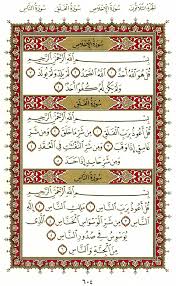 الجزء الثلاثون سورة الإخلاص سورة الفلق سورة الناس
سُورَةُ الإِخْلَاصِ
بِسْمِ ٱللَّهِ ٱلرَّحْمَٰنِ ٱلرَّحِيمِ
قُلْ هُوَ ٱللَّهُ أَحَدٌ ١ ٱللَّهُ ٱلصَّمَدُ ٢ لَمْ يَلِدْ وَلَمْ يُولَدْ
٣ وَلَمْ يَكُن لَّهُۥ كُفُوًا أَحَدٌۢ ٤
سُورَةُ الفَلَقِ
بِسْمِ ٱللَّهِ ٱلرَّحْمَٰنِ ٱلرَّحِيمِ
قُلْ أَعُوذُ بِرَبِّ ٱلْفَلَقِ ١ مِن شَرِّ مَا خَلَقَ ٢ وَمِن شَرِّ
غَاسِقٍ إِذَا وَقَبَ ٣ وَمِن شَرِّ ٱلنَّفَّٰثَٰتِ فِى ٱلْعُقَدِ ٤
وَمِن شَرِّ حَاسِدٍ إِذَا حَسَدَ ٥
سُورَةُ النَّاسِ
بِسْمِ ٱللَّهِ ٱلرَّحْمَٰنِ ٱلرَّحِيمِ
قُلْ أَعُوذُ بِرَبِّ ٱلنَّاسِ ١ مَلِكِ ٱلنَّاسِ ٢ إِلَٰهِ
ٱلنَّاسِ ٣ مِن شَرِّ ٱلْوَسْوَاسِ ٱلْخَنَّاسِ ٤ ٱلَّذِى
يُوَسْوِسُ فِى صُدُورِ ٱلنَّاسِ ٥
مِنَ ٱلْجِنَّةِ وَٱلنَّاسِ ٦
٦٠٤